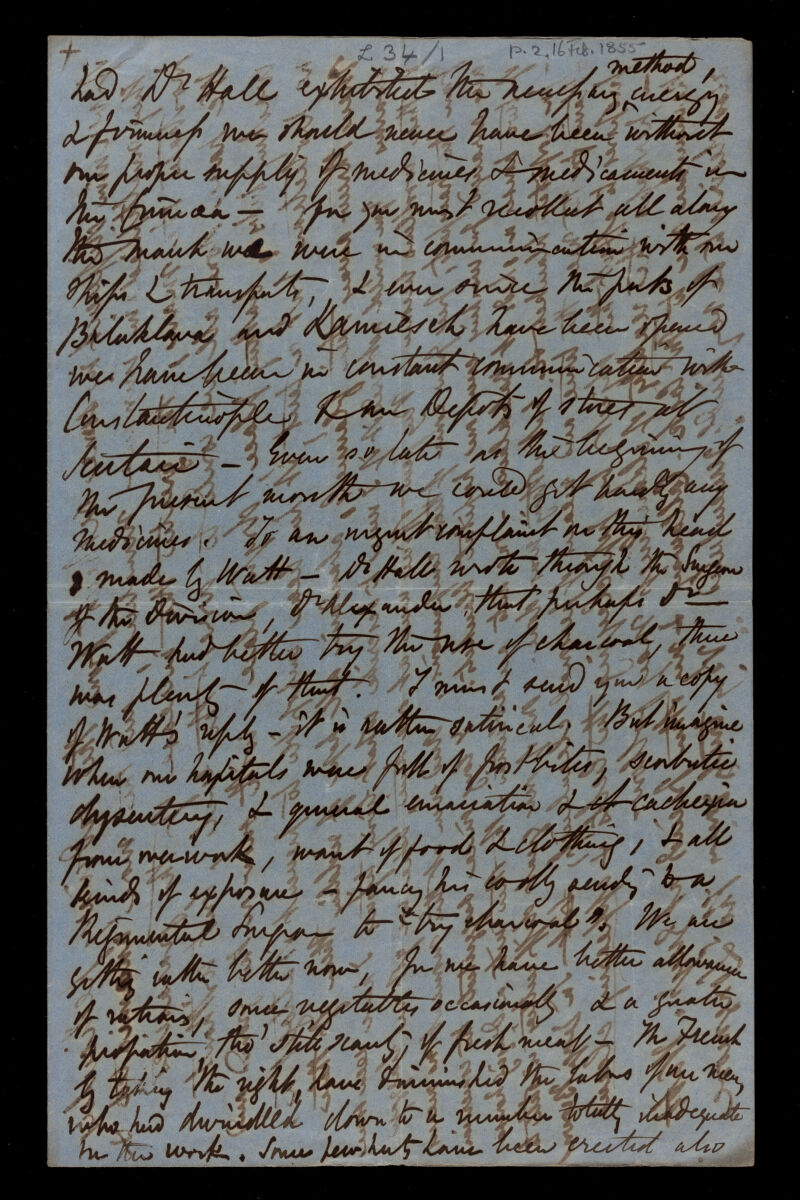 + L 34/1 p. 2. 16 Feb. 1855
method,
had Dr Hall exhibited the necessary energy
& firmness we should never have been without
our proper supply of medicines & medicaments in
the Crimea – for you must recollect all along
the march we were in communication with our
ships & transports, & ever since the ports of
Balaklava and Kamiesch have been opened
we have been in constant communication with
Constantinople & our Depots of stores at
Scutari – Even so late as the beginning of
the present month we could get hardly any
medicines. To an urgent complaint on this head
made by Watt – Dr Hall wrote through the Surgeon
of the Division, Dr Alexander, that perhaps Dr
Watt had better try the use of charcoal, there
was plenty of that. I must send you a copy
of Watt's reply – it is rather satirical. But imagine
when our hospitals were full of frostbites, scorbutic
dysentery, & general emaciation & cachexia
from overwork, want of food & clothing, & all
kinds of exposure – fancy his coolly sending to a
Regimental Surgeon to "try charcoal". We are
getting rather better now, for we have better allowance
of rations, some vegetables occasionally & a greater
proportion, tho' still scanty, of fresh meat – The French
by taking the right, have diminished the labors of our men,
who had dwindled down to a number totally inadequate
for the work. Some few huts have been erected also